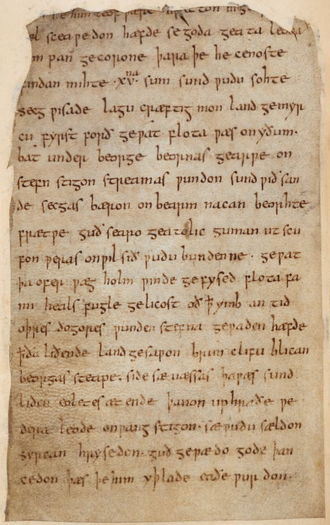 þe him leof ƿære
æl sceaƿedon hæfde se goda geata leoda
cempan gecorone þara þe he cenoste
findan mihte .xvna. sum sund ƿudu sohte
secg ƿisade lagu cræftig mon land gemyr
cu fyrst forð geƿat flota ƿæs on yðum
bat under beorge beornas gearƿe on
stefn stigon streamas ƿundon sund ƿið san
de secgas bæron on bearm nacan beorhte
frætƿe guð searo geatolic guman ut scu
fon ƿeras on ƿil sið ƿudu bundenne. geƿat
þa ofer ƿæg holm ƿinde gefysed flota fa
mi heals fugle gelicost oð ꝥ ymb an tid
oþres dogores ƿunden stefna geƿaden hæfde
ꝥ ða liðende land gesaƿon brim clifu blican
beorgas steape side sæ næssas þa ƿæs sund
liden eoletes æt ende þanon up hraðe ƿe
dera leode on ƿang stigon. sæ ƿudu sældon
syrcan hrysedon guð geƿædo gode þan
cedon þæs þe him yþ lade eaðe ƿurdon.